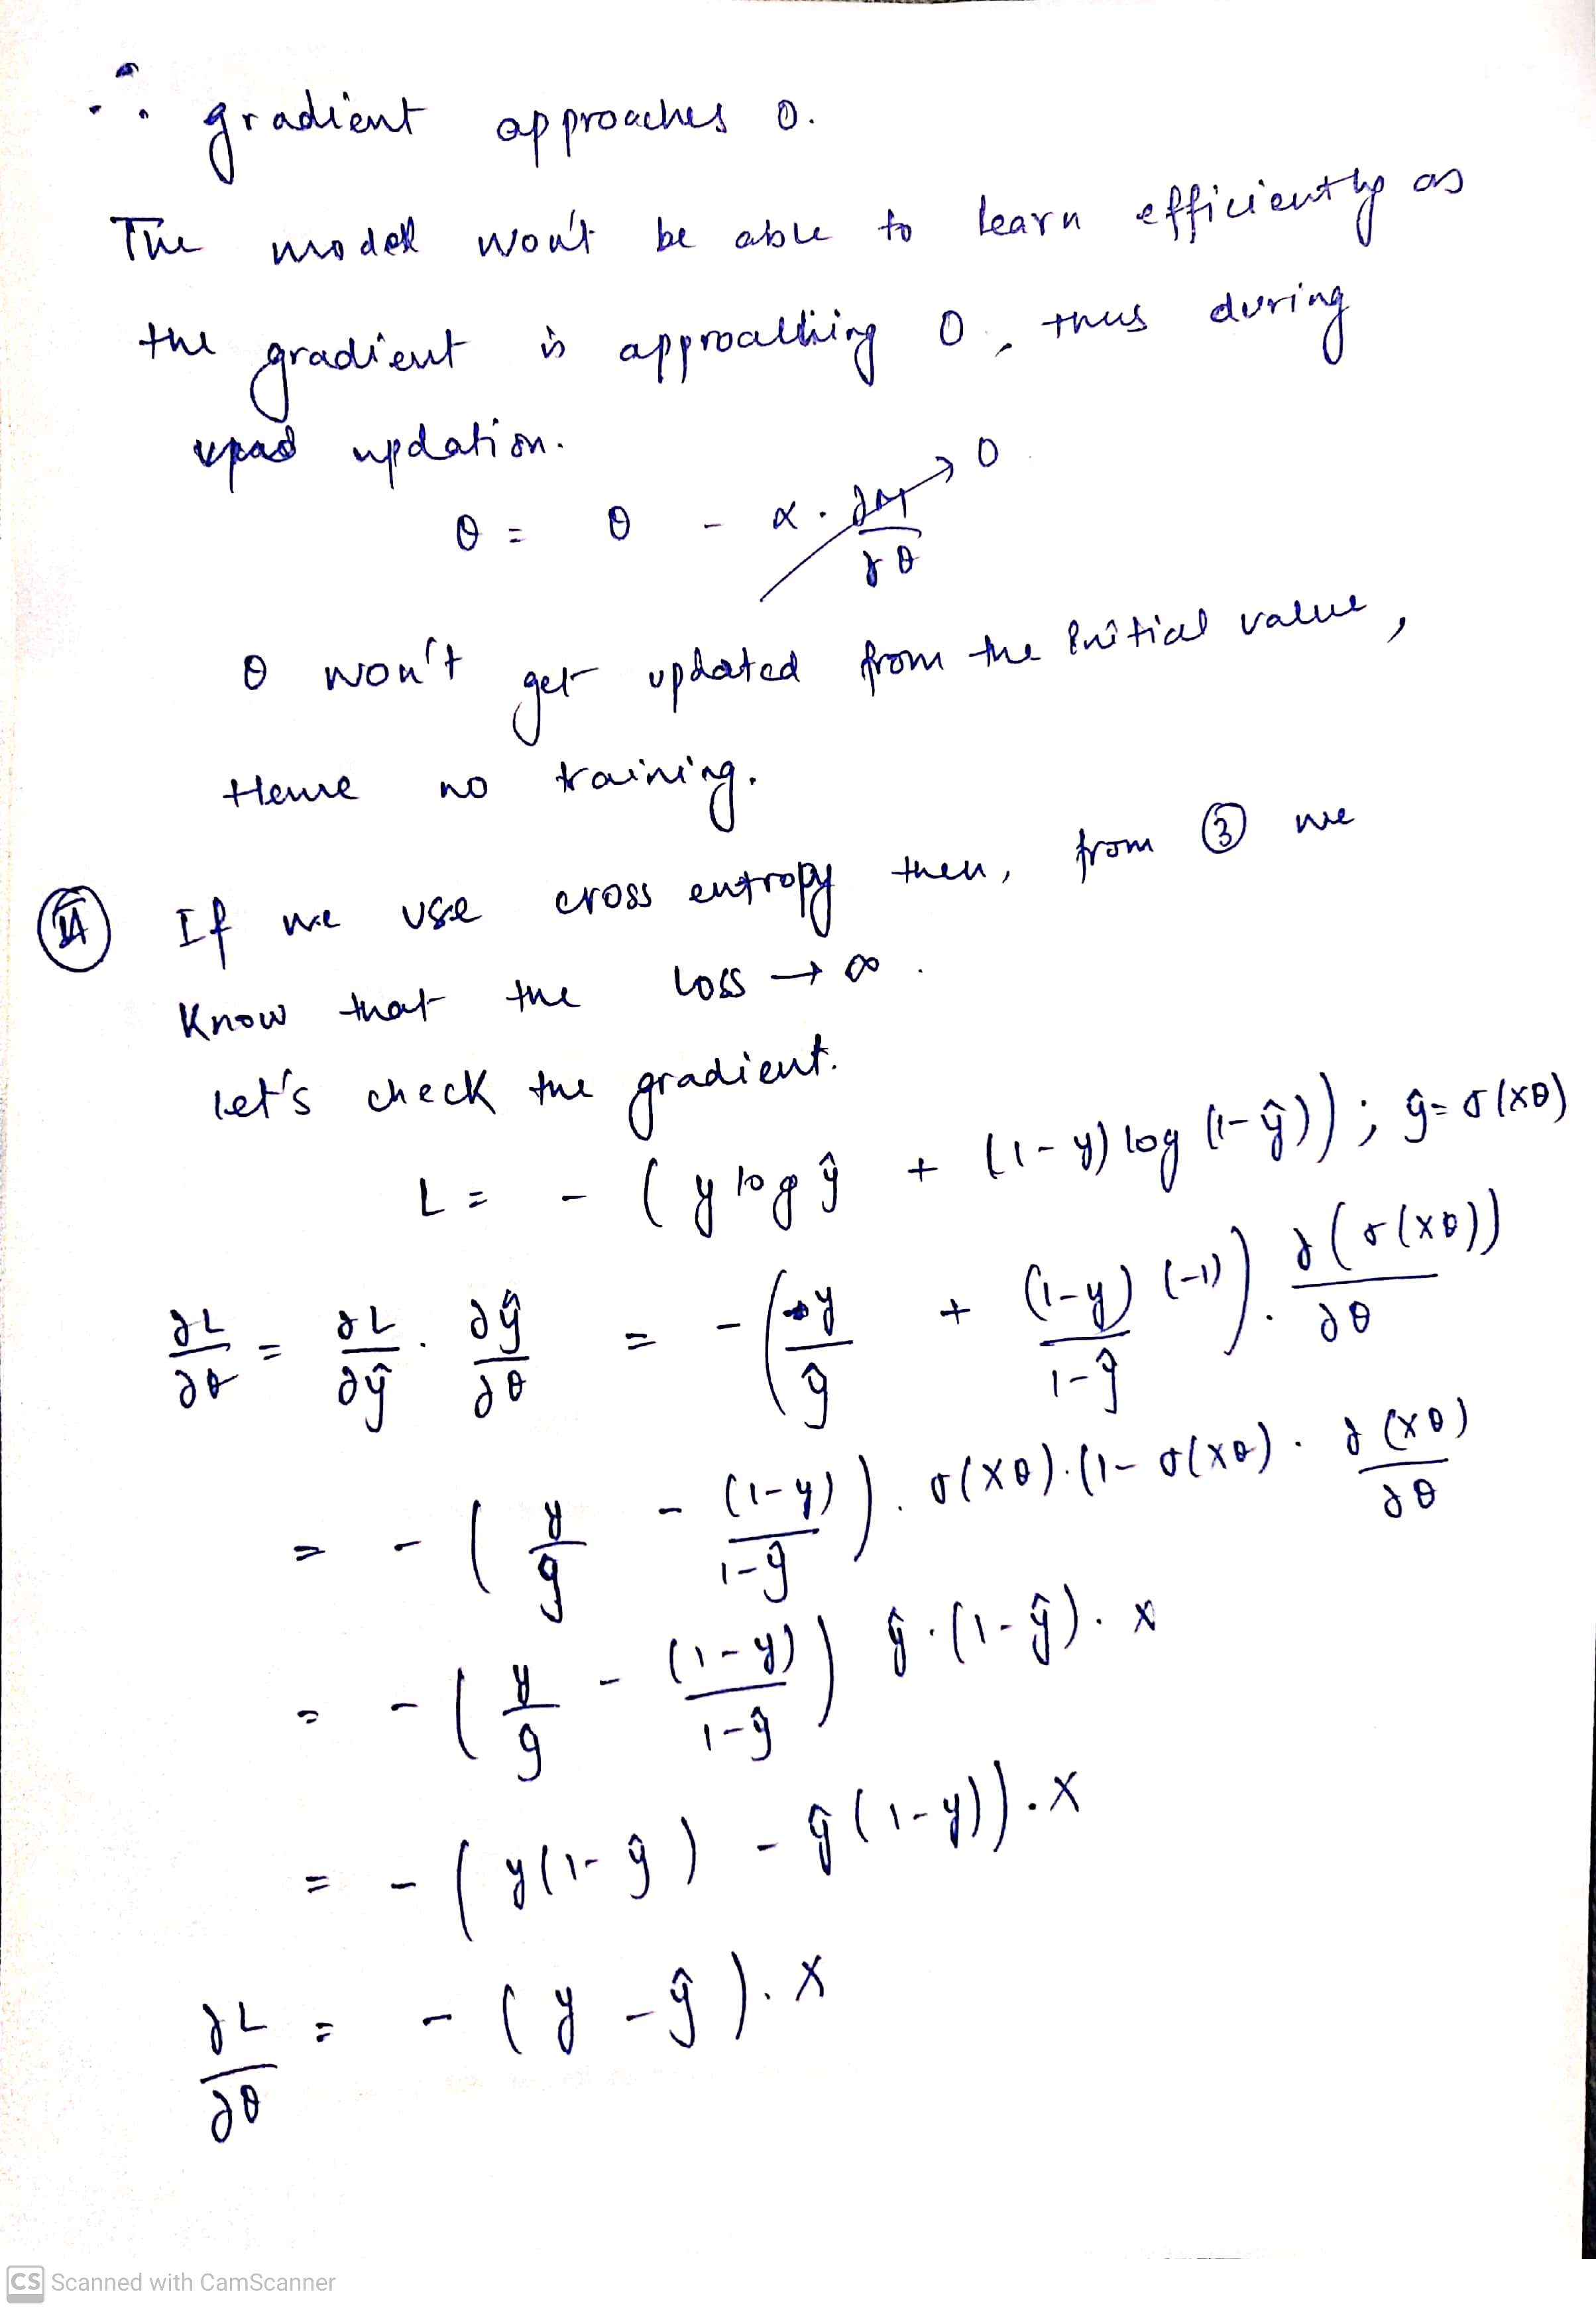 ∴ gradient approaches 0.
The model won't be able to learn efficiently as
the gradient is approaching 0, thus during
updation.
θ = θ - α. ∂/∂θ → 0
θ won't get updated from the initial value,
Hence no training.
If we use cross entropy then, from ③ we
know that the loss → ∞.
let's check the gradient.
L = - (y log ŷ + (1-y) log (1-ŷ)) ; ŷ = σ(xθ)
∂L/∂θ = ∂L/∂ŷ . ∂ŷ/∂θ = - (y/ŷ + (1-y)(-1)/1-ŷ) . ∂(σ(xθ))/∂θ
= - (y/ŷ - (1-y)/1-ŷ) . σ(xθ).(1-σ(xθ) . ∂(xθ)/∂θ
= - (y/ŷ - (1-y)/1-ŷ) ŷ.(1-ŷ). x
= - (y(1-ŷ) - ŷ(1-y)).x
∂L/∂θ = - (y - ŷ).x
CS Scanned with CamScanner